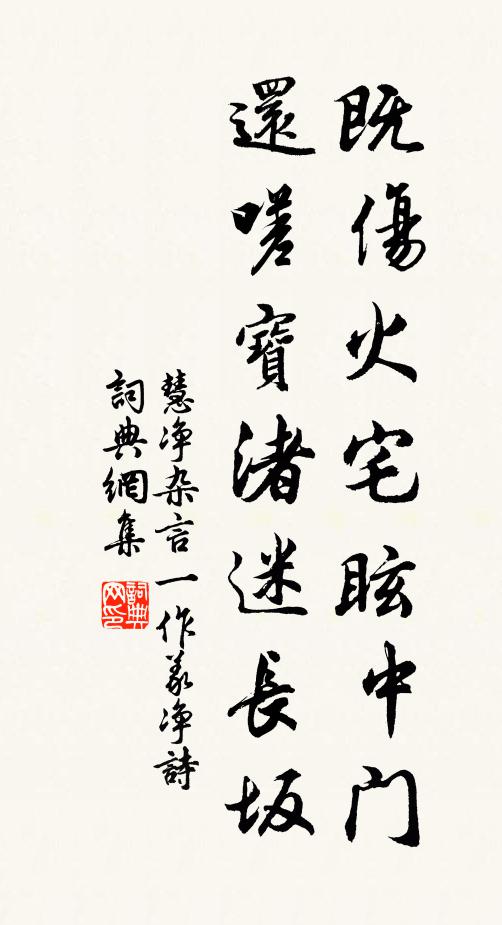 既傷火宅眩中門
還嗟寶渚迷長坂
慧净杂言一作義净詩
詞典網集
詞典网印